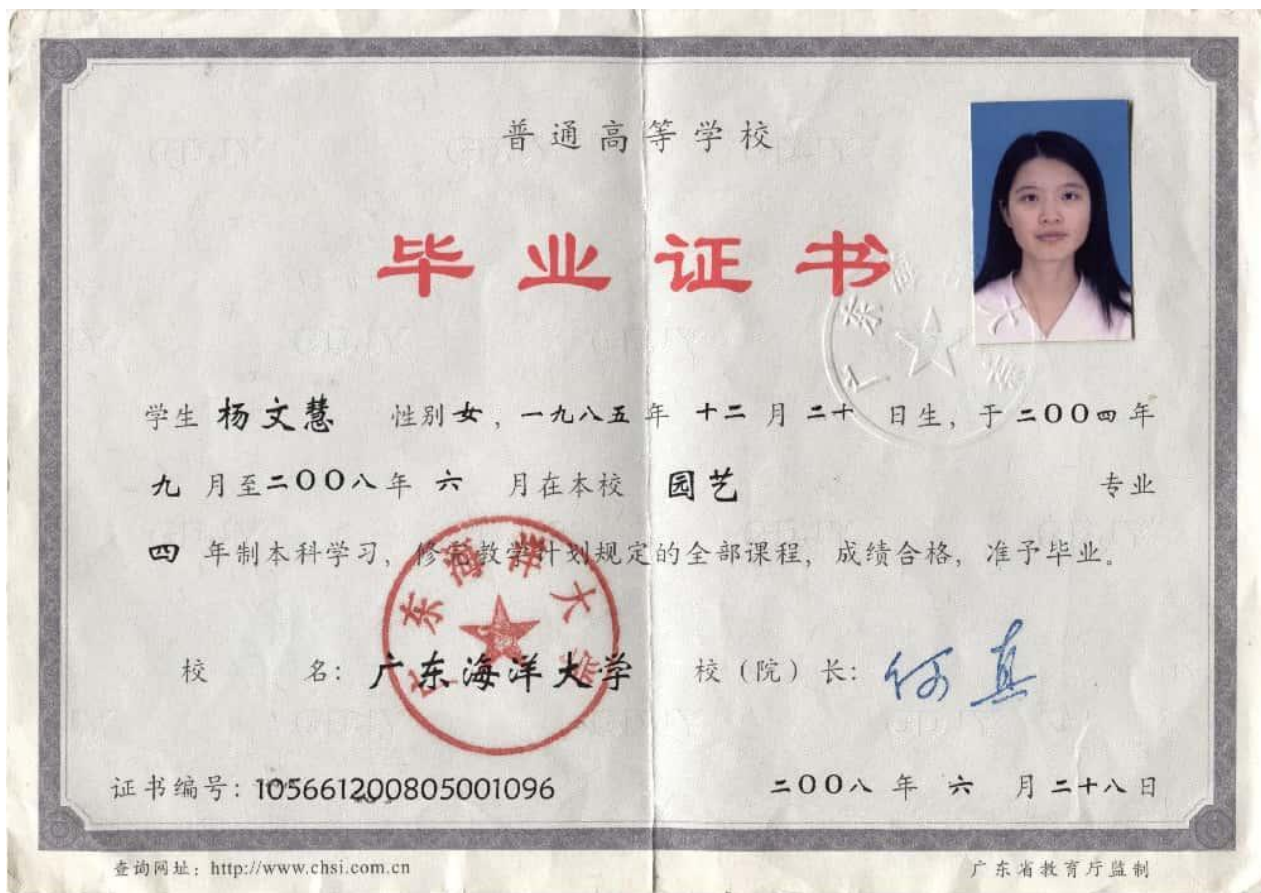 普通高等学校
毕业证书
学生 杨文慧 性别 女，一九八五 年 十二 月 二十 日生，于 二〇〇四 年
九 月至 二〇〇八 年 六 月在本校 园艺 专业
四 年制本科学习，修完教学计划规定的全部课程，成绩合格，准予毕业。
校 名：广东海洋大学 校（院）长：何真
证书编号：105661200805001096 二〇〇八 年 六 月 二十八 日
查询网址：http://www.chsi.com.cn 广东省教育厅监制
广东海洋大学
广东海洋大学